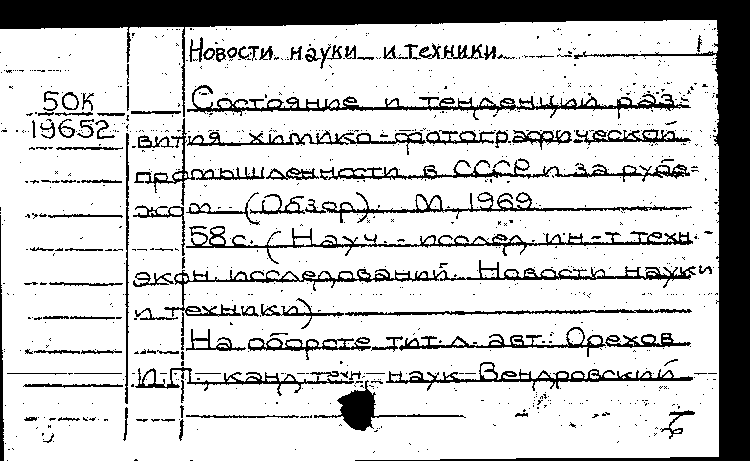 Новости науки и техники. 1
50К
19652
Состояние и тенденции раз-
вития химико-фотографической
промышленности в СССР и за рубе-
жом. (Обзор). М., 1969.
58с. (Науч.-исслед. ин-т техн.-
экон. исследований. Новости науки
и техники).
На обороте тит. л. авт.: Орехов
И.П., канд. техн. наук Вендровский